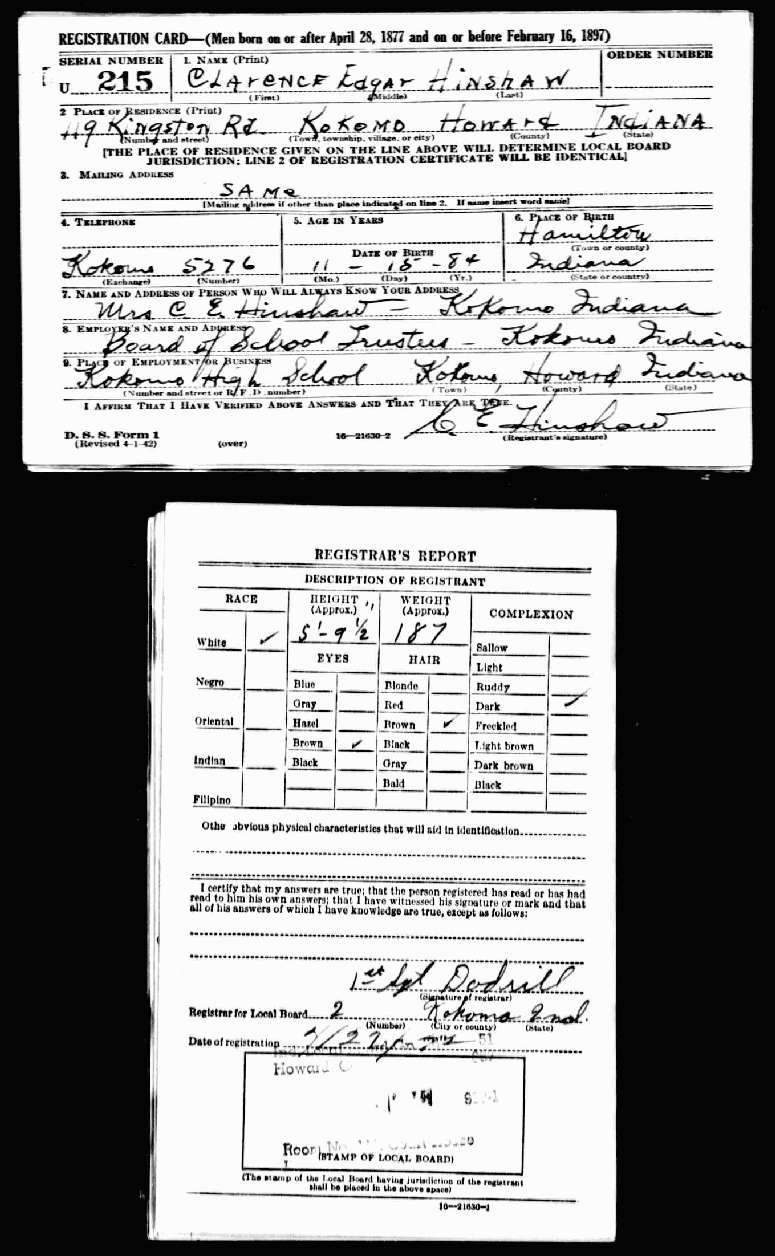 REGISTRATION CARD—(Men born on or after April 28, 1877 and on or before February 16, 1897)
SERIAL NUMBER 1. NAME (Print) ORDER NUMBER
U 215 CLARENCE EdgAr HINSHAW
(First) (Middle) (Last)
2 PLACE OF RESIDENCE (Print)
119 Kingston Rd. KOKOMO HOWARd INdiANA
(Number and street) (Town, township, village, or city) (County) (State)
[THE PLACE OF RESIDENCE GIVEN ON THE LINE ABOVE WILL DETERMINE LOCAL BOARD
JURISDICTION; LINE 2 OF REGISTRATION CERTIFICATE WILL BE IDENTICAL]
3. MAILING ADDRESS
SAMe
[Mailing address if other than place indicated on line 2. If same insert word same]
4. TELEPHONE 5. AGE IN YEARS 6. PLACE OF BIRTH
Hamilton
(Town or county)
DATE OF BIRTH
Kokomo 5276 11 - 15 - 84 Indiana
(Exchange) (Number) (Mo.) (Day) (Yr.) (State or country)
7. NAME AND ADDRESS OF PERSON WHO WILL ALWAYS KNOW YOUR ADDRESS
Mrs C. E. Hinshaw - Kokomo Indiana
8. EMPLOYER'S NAME AND ADDRESS
Board of School Trustees - Kokomo Indiana
9. PLACE OF EMPLOYMENT OR BUSINESS
Kokomo High School Kokomo, Howard Indiana
(Number and street or R. F. D. number) (Town) (County) (State)
I AFFIRM THAT I HAVE VERIFIED ABOVE ANSWERS AND THAT THEY ARE TRUE.
C E Hinshaw
D. S. S. Form 1
(Revised 4-1-42) (over) 16—21630-2 (Registrant's signature)
REGISTRAR'S REPORT
DESCRIPTION OF REGISTRANT
RACE HEIGHT (Approx.) WEIGHT (Approx.) COMPLEXION
White ✓ 5'-9 ½" 187
Sallow
EYES HAIR Light
Negro Blue Blonde Ruddy
Gray Red Dark ✓
Oriental Hazel Brown ✓ Freckled
Brown ✓ Black Light brown
Indian Black Gray Dark brown
Bald Black
Filipino
Othe obvious physical characteristics that will aid in identification
I certify that my answers are true; that the person registered has read or has had
read to him his own answers; that I have witnessed his signature or mark and that
all of his answers of which I have knowledge are true, except as follows:
1st Sgt Dodrill
(Signature of registrar)
Registrar for Local Board 2 Kokomo Ind.
(Number) (City or county) (State)
Date of registration 51
Howard
Room
(STAMP OF LOCAL BOARD)
(The stamp of the Local Board having jurisdiction of the registrant
shall be placed in the above space)
16—21630-1